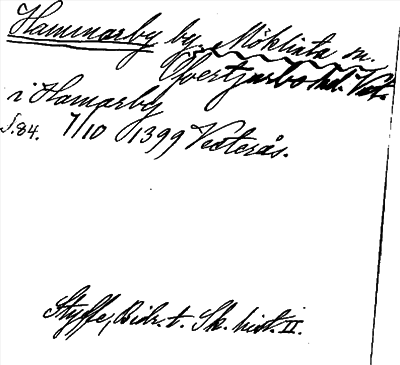 Hammarby by, Möklinta sn.
Övertjurbo hd. Vstm.
i Hamarby
s. 84. 7/10 1399 Västerås.
Styffe, Bidr. t. Sk. hist. II.